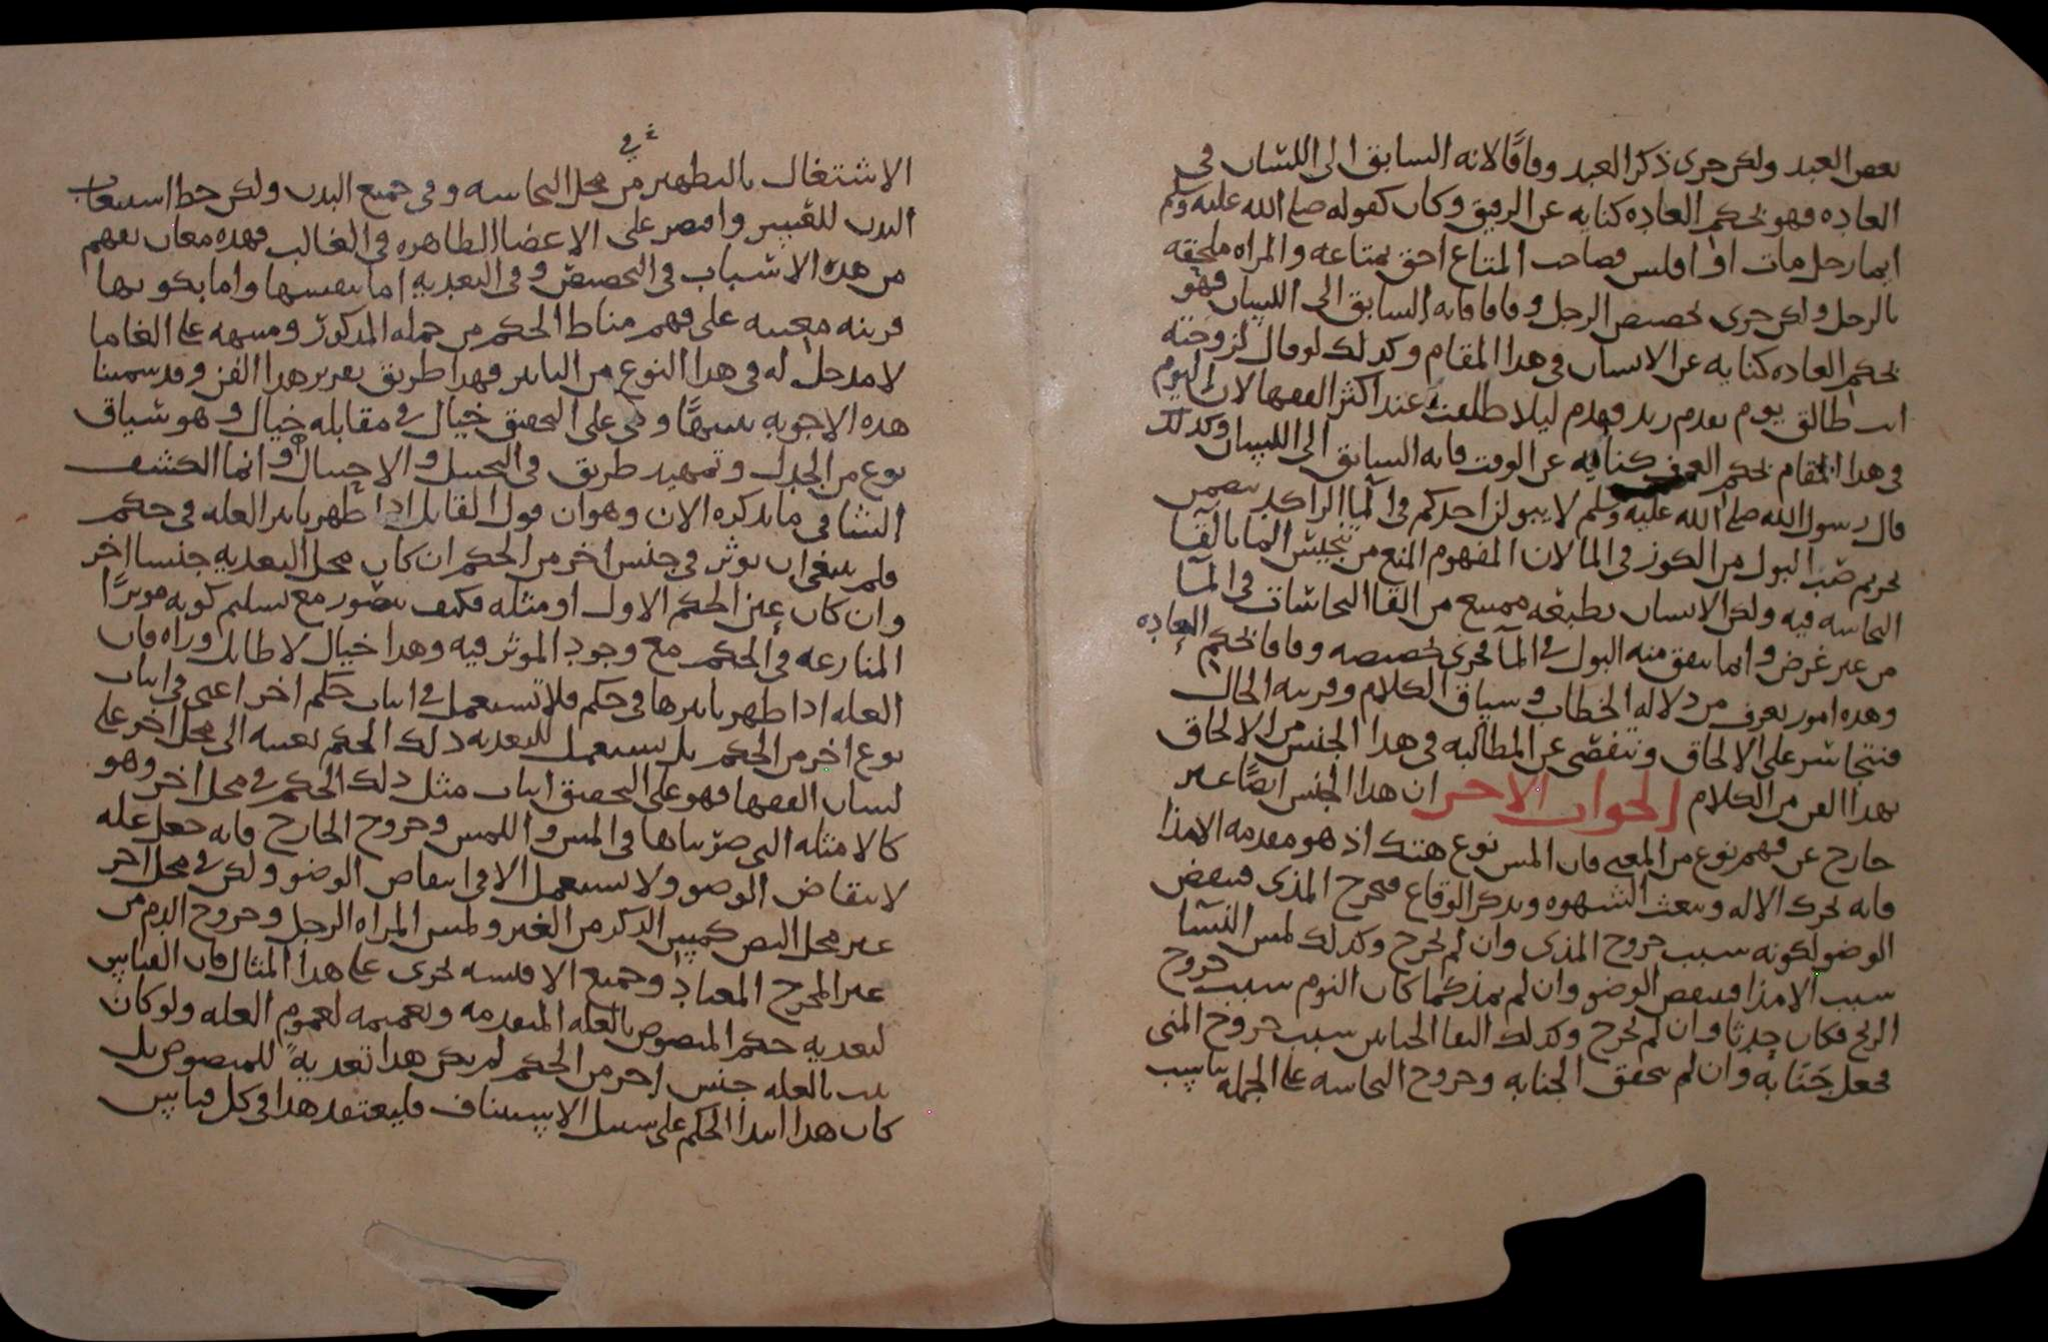 بعض العبد ولكن جرى ذكر العبد وفاقًا لانه السابق الى اللسان في
العاده فهو بحكم العاده كنايه عن الرقيق وكان كقوله صلى الله عليه وسلم
ايما رجل مات او افلس فصاحب المتاع احق بمتاعه والمراه ملحقه
بالرجل ولكن جرى تخصيص الرجل وفاقا فانه السابق الى اللسان فهو
بحكم العاده كنايه عن الانسان في هذا المقام وكذلك لو قال لزوجته
انت طالق يوم يقدم زيد فقدم ليلا طلقت عند اكثر الفقها لان اليوم
في هذا المقام بحكم العرف كنايه عن الوقت فانه السابق الى اللسان وكذلك
قال رسول الله صلى الله عليه وسلم لا يبولن احدكم في الما الراكد يتضمن
تحريم صب البول من الكوز في الما لان المفهوم المنع من تنجيس الما بالقا
النجاسه فيه ولكن الانسان بطبعه ممتنع من القا النجاسات في الما
من غير غرض وانما يتفق منه البول في الما فجرى تخصيصه وفاقا بحكم العاده
وهذه امور تعرف من دلاله الخطاب وسياق الكلام وقرينه الحال
فنتجاسر على الالحاق ونتفصى عن المطالبه في هذا الجنس من الالحاق
بهذا الفن من الكلام الجواب الاخر ان هذا الجنس ايضًا غير
خارج عن فهم نوع من المعنى فان المس نوع هتك اذ هو مقدمه الامذا
فانه يحرك الاله ويبعث الشهوه ويذكر الوقاع فيخرج المذى فينقض
الوضو لكونه سبب خروج المذى وان لم يخرج وكذلك لمس النسا
سبب الامذا فينقض الوضو وان لم يمذ كما كان النوم سبب خروج
الريح فكان حدثا وان لم يخرج وكذلك التقا الختانين سبب خروج المنى
فجعل جنابه وان لم يتحقق الجنابه وخروج النجاسه على الجمله يناسب
الاشتغال بالتطهير من محل النجاسه وفي جميع البدن ولكن حط استيعاب
البدن للتيسير واقتصر على الاعضا الظاهره في الغالب فهذه معان تفهم
من هذه الاسباب في التخصيص وفي التعديه اما بنفسها واما بكونها
قرينه معينه على فهم مناط الحكم من جمله المذكور ومنبهه على الغا ما
لا مدخل له في هذا النوع من التاثير فهذا طريق تقرير هذا الفن وقد سمينا
هذه الاجوبه شبهًا وهى على التحقيق خيال في مقابله خيال وهو سياق
نوع من الجدل وتمهيد طريق في التخييل والاحتيال وانما الكشف
الشافي ما نذكره الان وهو ان قول القايل اذا ظهر تاثير العله في حكم
فلم ينبغى ان يوثر في جنس اخر من الحكم ان كان محل التعديه جنسا اخر
وان كان عين الحكم الاول او مثله فكيف يتصور مع تسليم كونه موثرًا
المنازعه في الحكم مع وجود الموثر فيه وهذا خيال لا طايل وراه فان
العله اذا ظهر تاثيرها في حكم فلا تستعمل في اثبات حكم اخر اعنى في اثبات
نوع اخر من الحكم بل تستعمل لتعديه ذلك الحكم بعينه الى محل اخر على
لسان الفقها فهو على التحقيق اثبات مثل ذلك الحكم في محل اخر وهو
كالامثله التى ضربناها في المس واللمس وخروج الخارج فانه جعل عله
لانتقاض الوضو ولا تستعمل الا في انتقاض الوضو ولكن في محل اخر
غير محل النص كمس الذكر من الغير ولمس المراه الرجل وخروج الدم من
غير المخرج المعتاد وجميع الاقيسه تجرى على هذا المثال فان القياس
لتعديه حكم المنصوص بالعله المتقدمه وتعميمه لعموم العله ولو كان
يثبت بالعله جنس اخر من الحكم لم يكن هذا تعديةً للمنصوص بل
كان هذا ابتدا الحكم على سبيل الاستيناف فليعتقد هذا في كل قياس